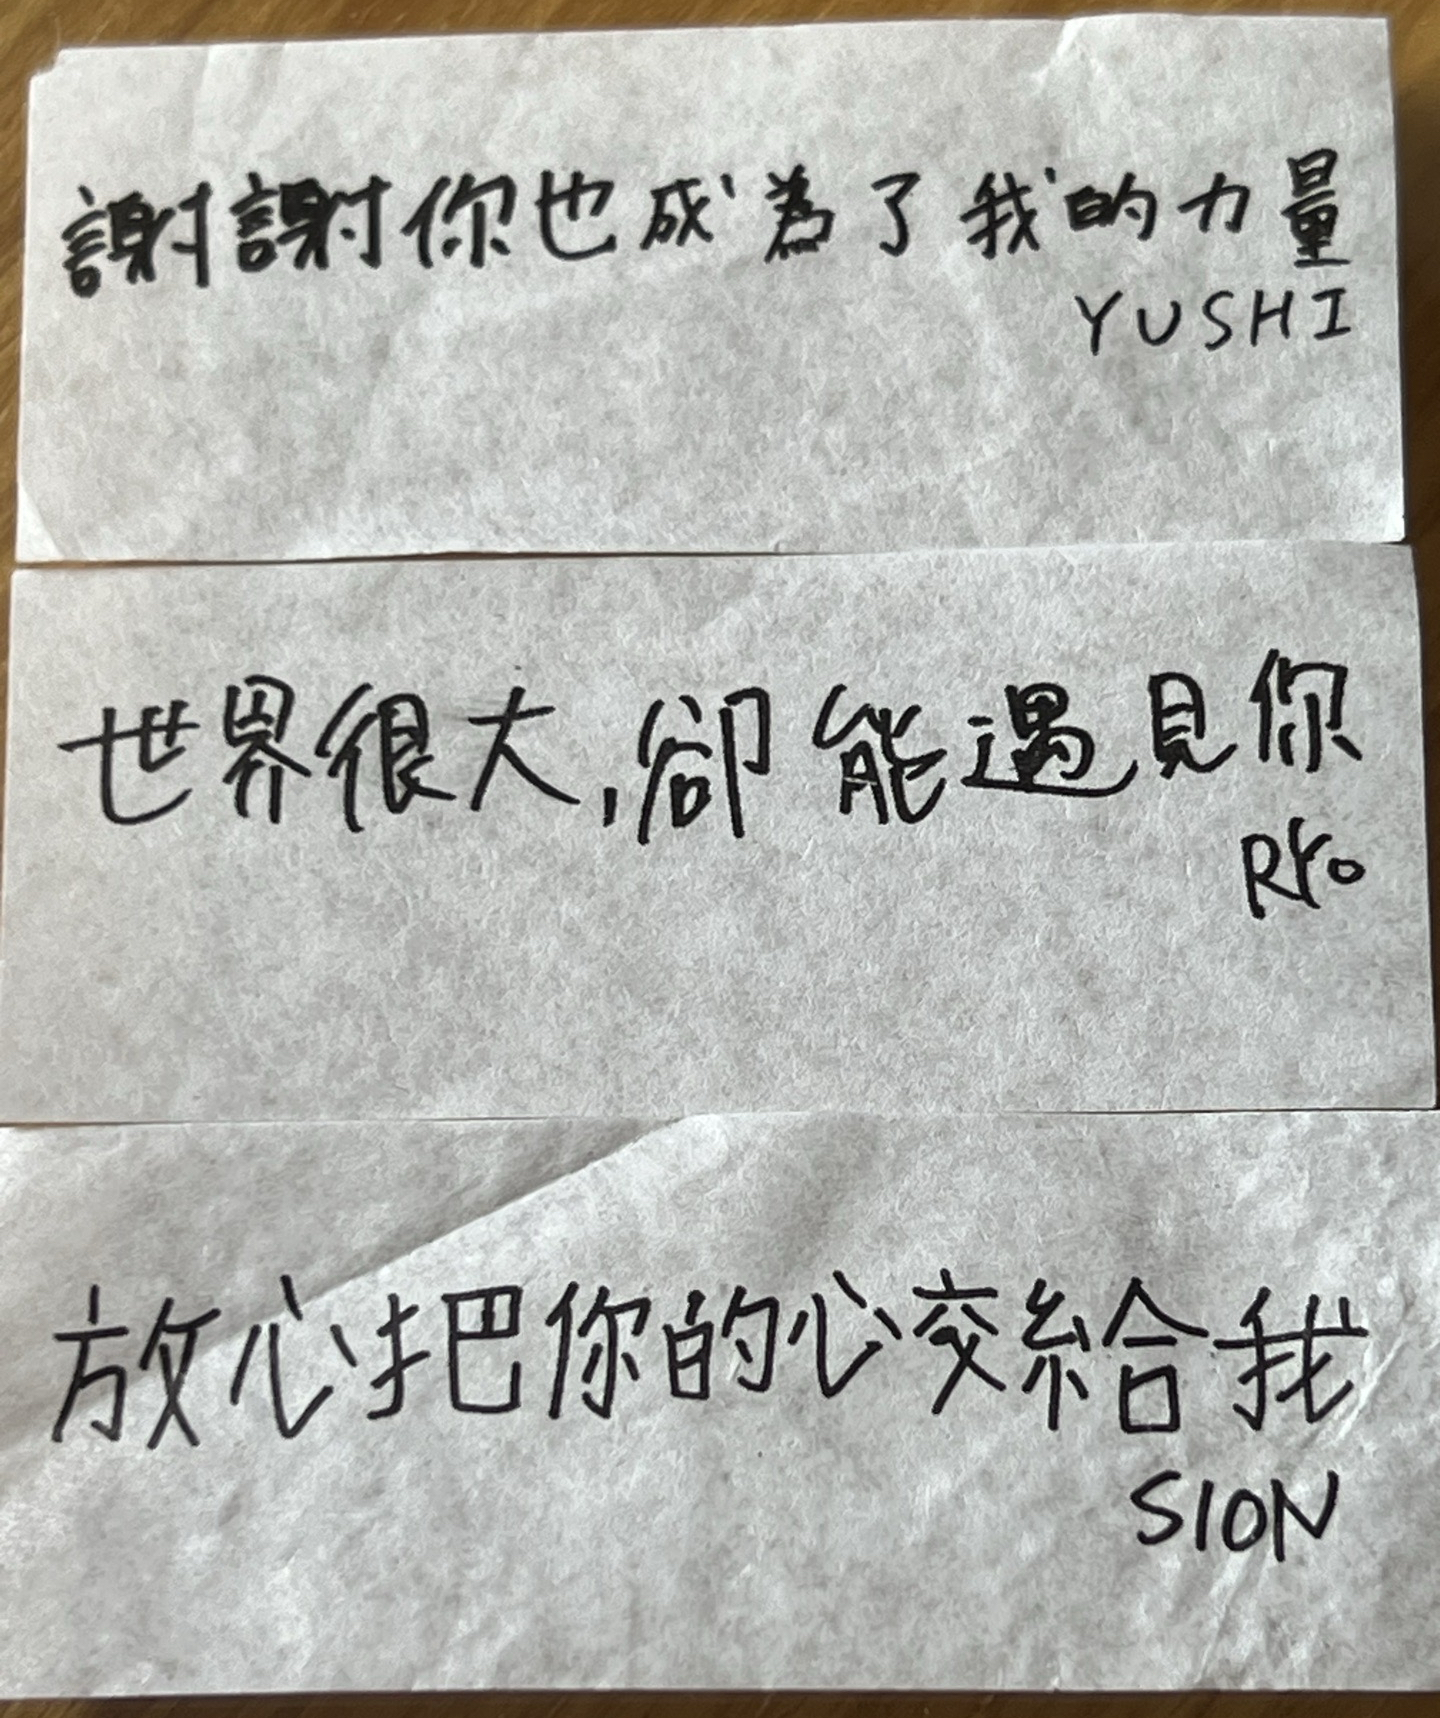 謝謝你也成為了我的力量
YUSHI
世界很大,卻能遇見你
RYO
放心把你的心交給我
SION